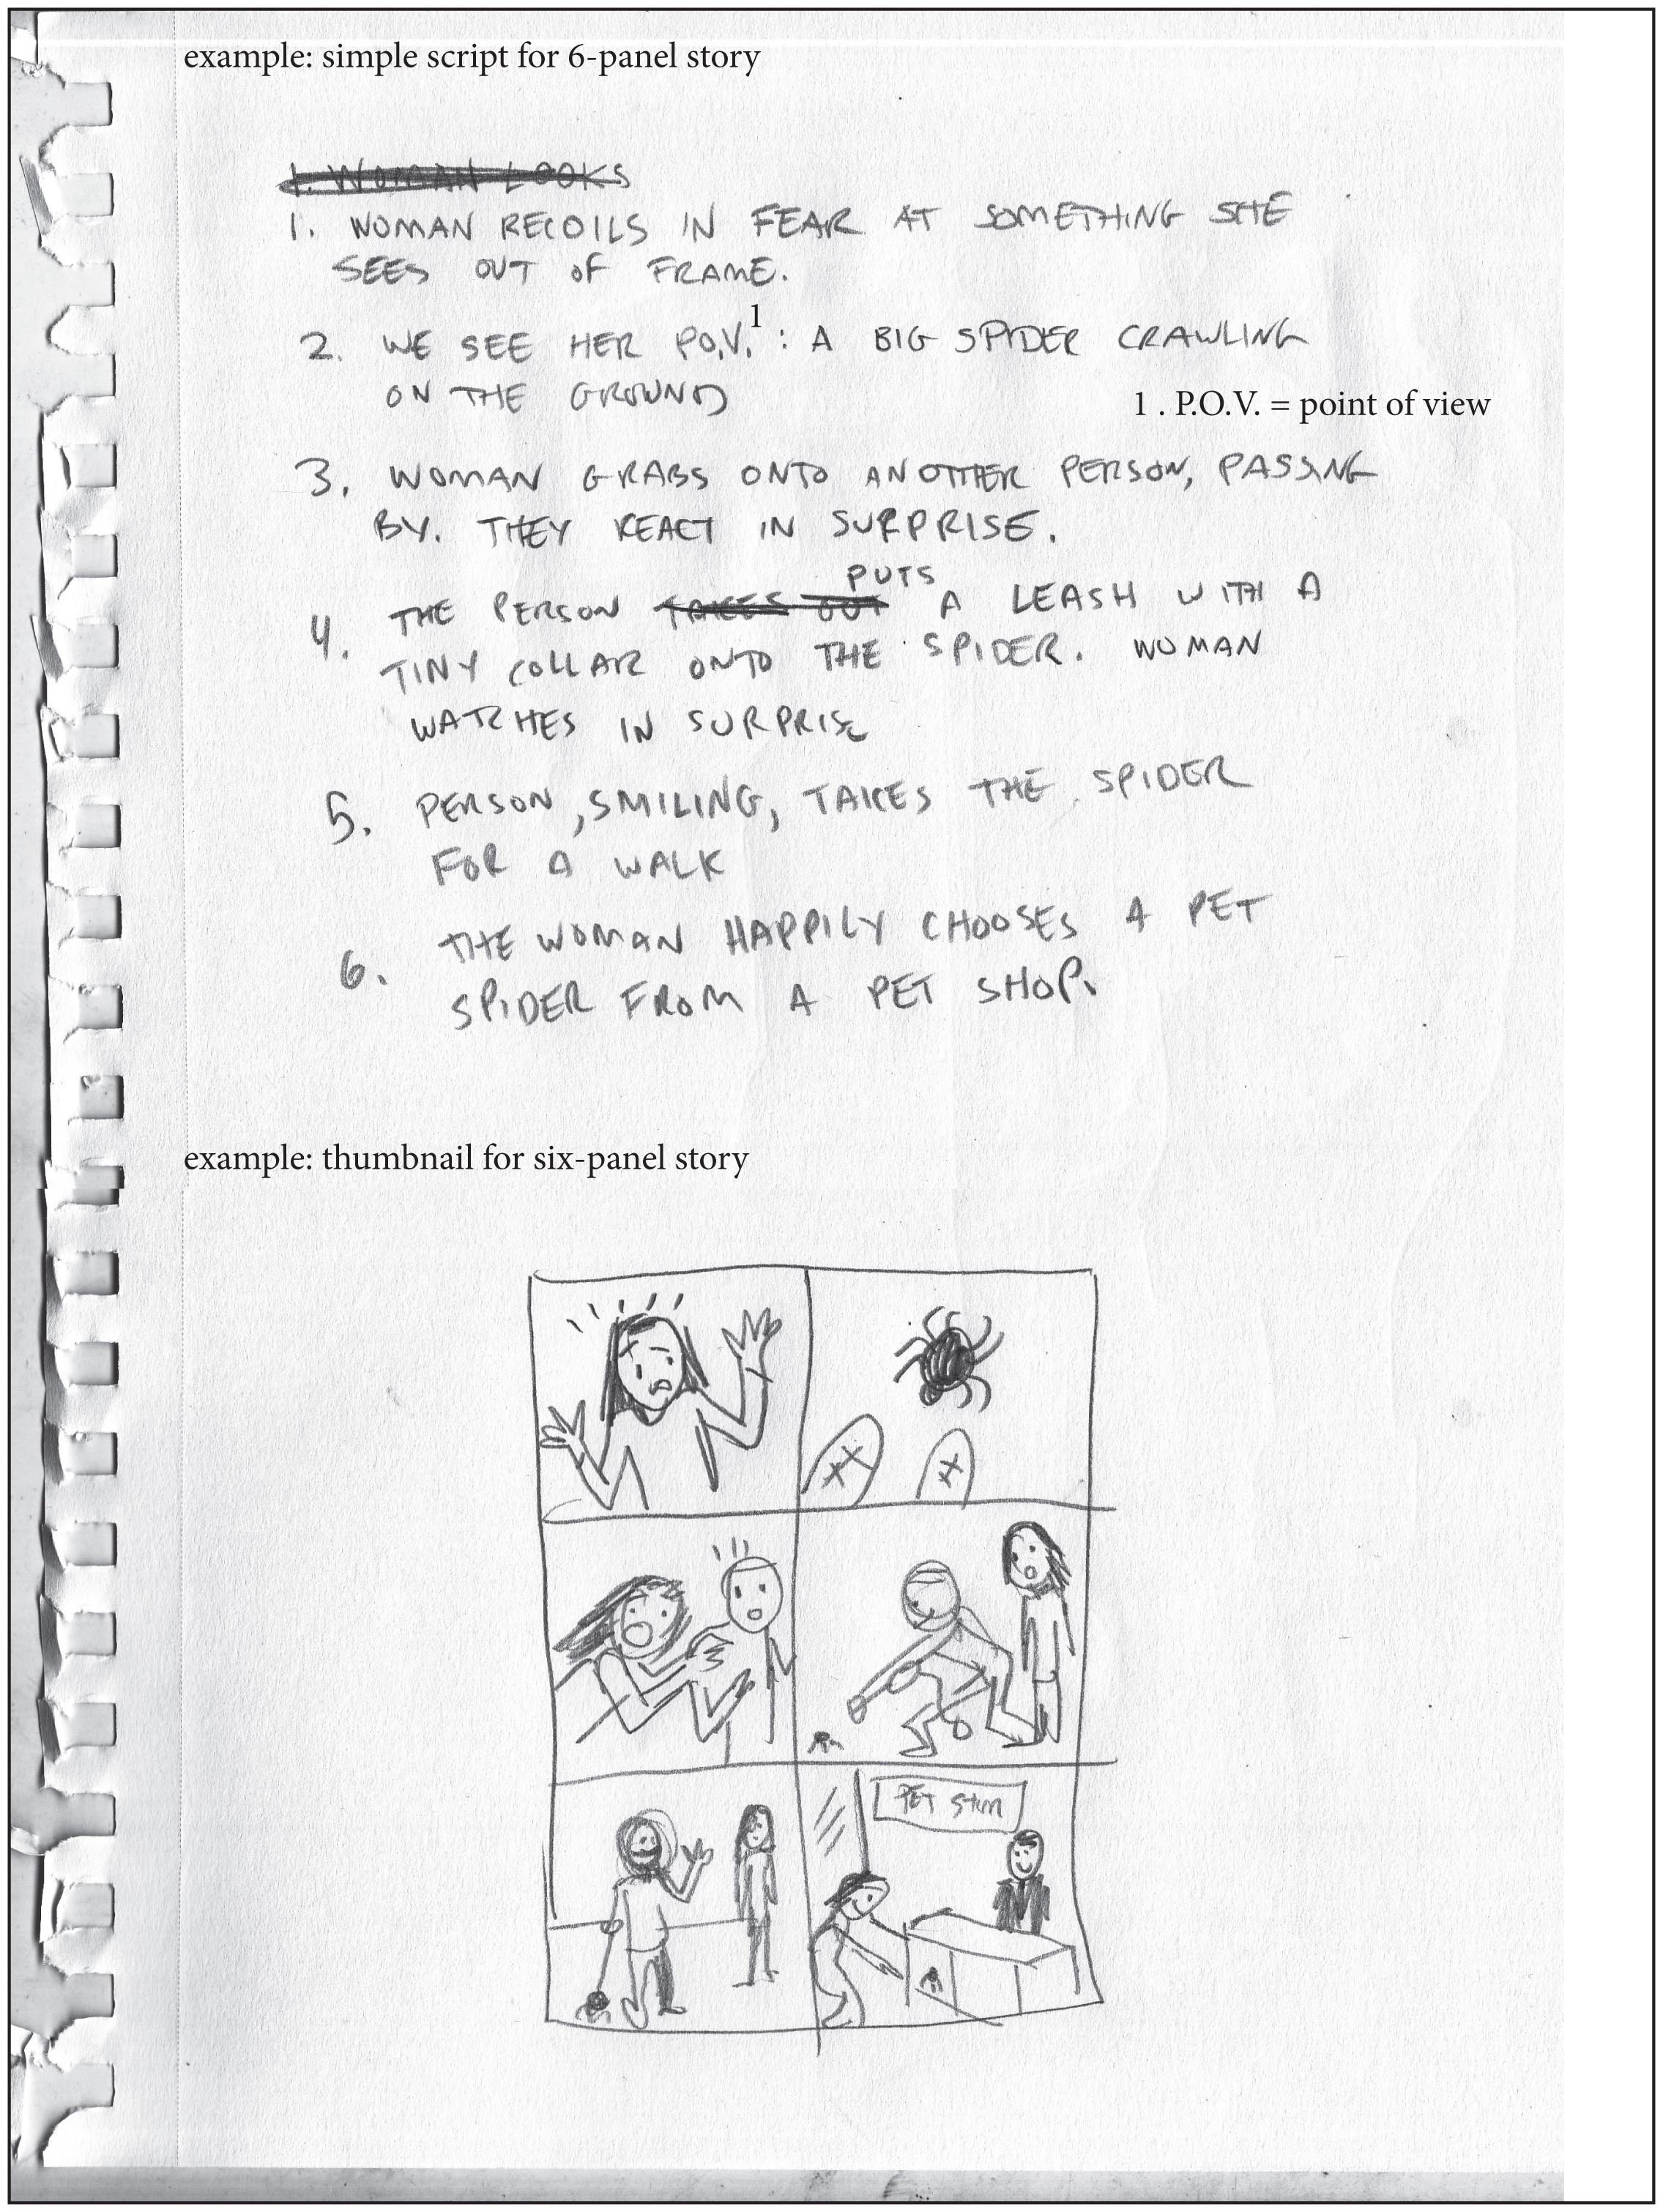 example: simple script for 6-panel story
1. WOMAN LOOKS
1. WOMAN RECOILS IN FEAR AT SOMETHING SHE
SEES OUT OF FRAME.
2. WE SEE HER P.O.V.1 : A BIG SPIDER CRAWLING
ON THE GROUND
1 . P.O.V. = point of view
3. WOMAN GRABS ONTO ANOTHER PERSON, PASSING
BY. THEY REACT IN SURPRISE.
PUTS
4. THE PERSON TAKES OUT A LEASH WITH A
TINY COLLAR ONTO THE SPIDER. WOMAN
WATCHES IN SURPRISE
5. PERSON, SMILING, TAKES THE SPIDER
FOR A WALK
6. THE WOMAN HAPPILY CHOOSES A PET
SPIDER FROM A PET SHOP.
example: thumbnail for six-panel story
PET